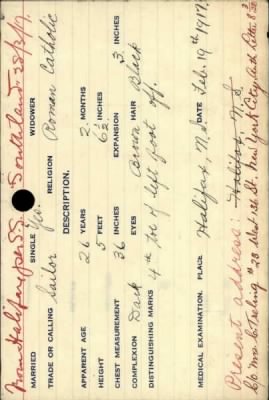 From Halifax per SS. Southland. 28/3/17.
MARRIED SINGLE Yes. WIDOWER
TRADE OR CALLING Sailor RELIGION Roman Catholic
DESCRIPTION.
APPARENT AGE 26 YEARS 2 MONTHS
HEIGHT 5 FEET 6½ INCHES
CHEST MEASUREMENT 36 INCHES EXPANSION 3 INCHES
COMPLEXION Dark EYES Brown HAIR Black
DISTINGUISHING MARKS 4th toe of left foot off.
MEDICAL EXAMINATION. PLACE Halifax, N.S. DATE Feb. 19th 1917.
Present address: Halifax, N.S.
c/o Mrs C. 28 West 1st St. New York City, auth Letter